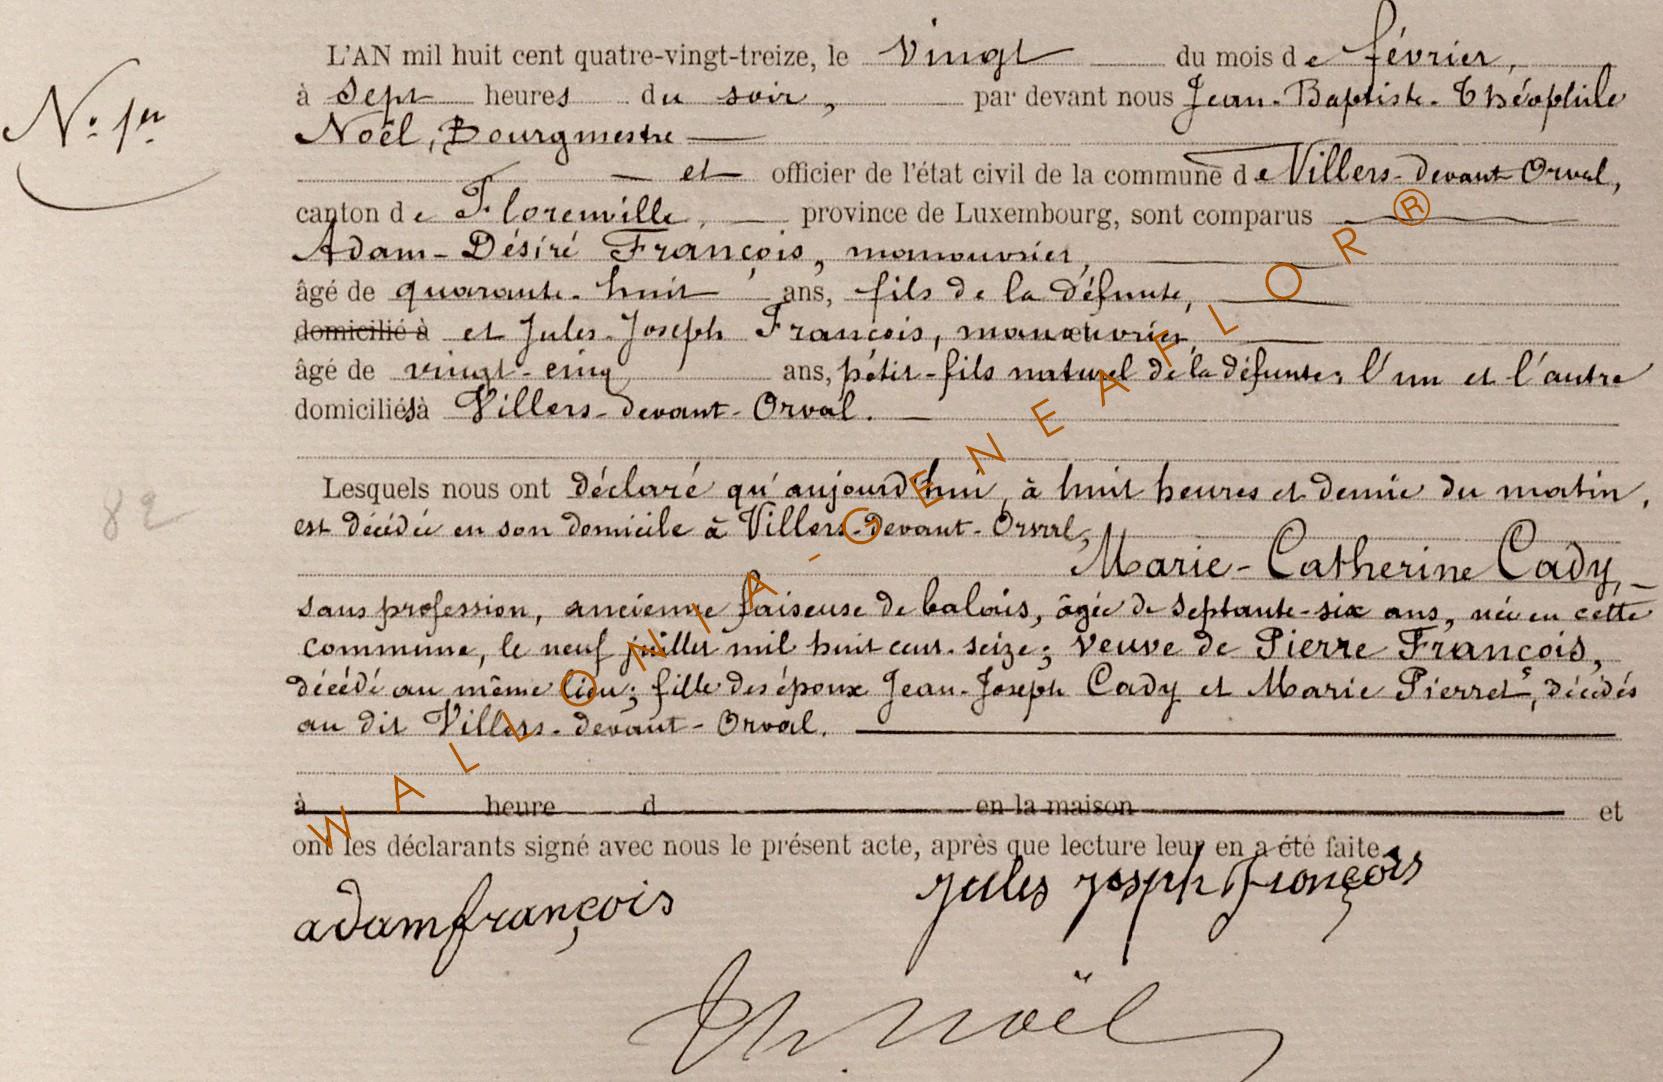 L'AN mil huit cent quatre-vingt-treize, le vingt du mois de février,
à sept heures du soir, par devant nous Jean-Baptiste-Théophile
N° 1er
Noël, Bourgmestre
et officier de l'état civil de la commune de Villers-devant-Orval,
canton de Florenville, province de Luxembourg, sont comparus
Adam-Désiré François, manouvrier,
âgé de quarante-huit ans, fils de la défunte,
domicilié à et Jules-Joseph François, manœuvrier,
âgé de vingt-cinq ans, pétit-fils naturel de la défunte; l'un et l'autre
domiciliés à Villers-devant-Orval.
Lesquels nous ont déclaré qu'aujourd'hui, à huit heures et demie du matin,
est décédée en son domicile à Villers-devant-Orval,
82
Marie-Catherine Cady,
sans profession, ancienne faiseuse de balais, âgée de septante-six ans, née en cette
commune, le neuf juillet mil huit cent-seize; veuve de Pierre François,
décédé au même lieu; fille des époux Jean-Joseph Cady et Marie Pierret, décédés
au dit Villers-devant-Orval.
à heure d en la maison et
ont les déclarants signé avec nous le présent acte, après que lecture leur en a été faite.
adam françois
Jules Joseph François
Th. Noël
WALLONIA-GENEAFLOR®